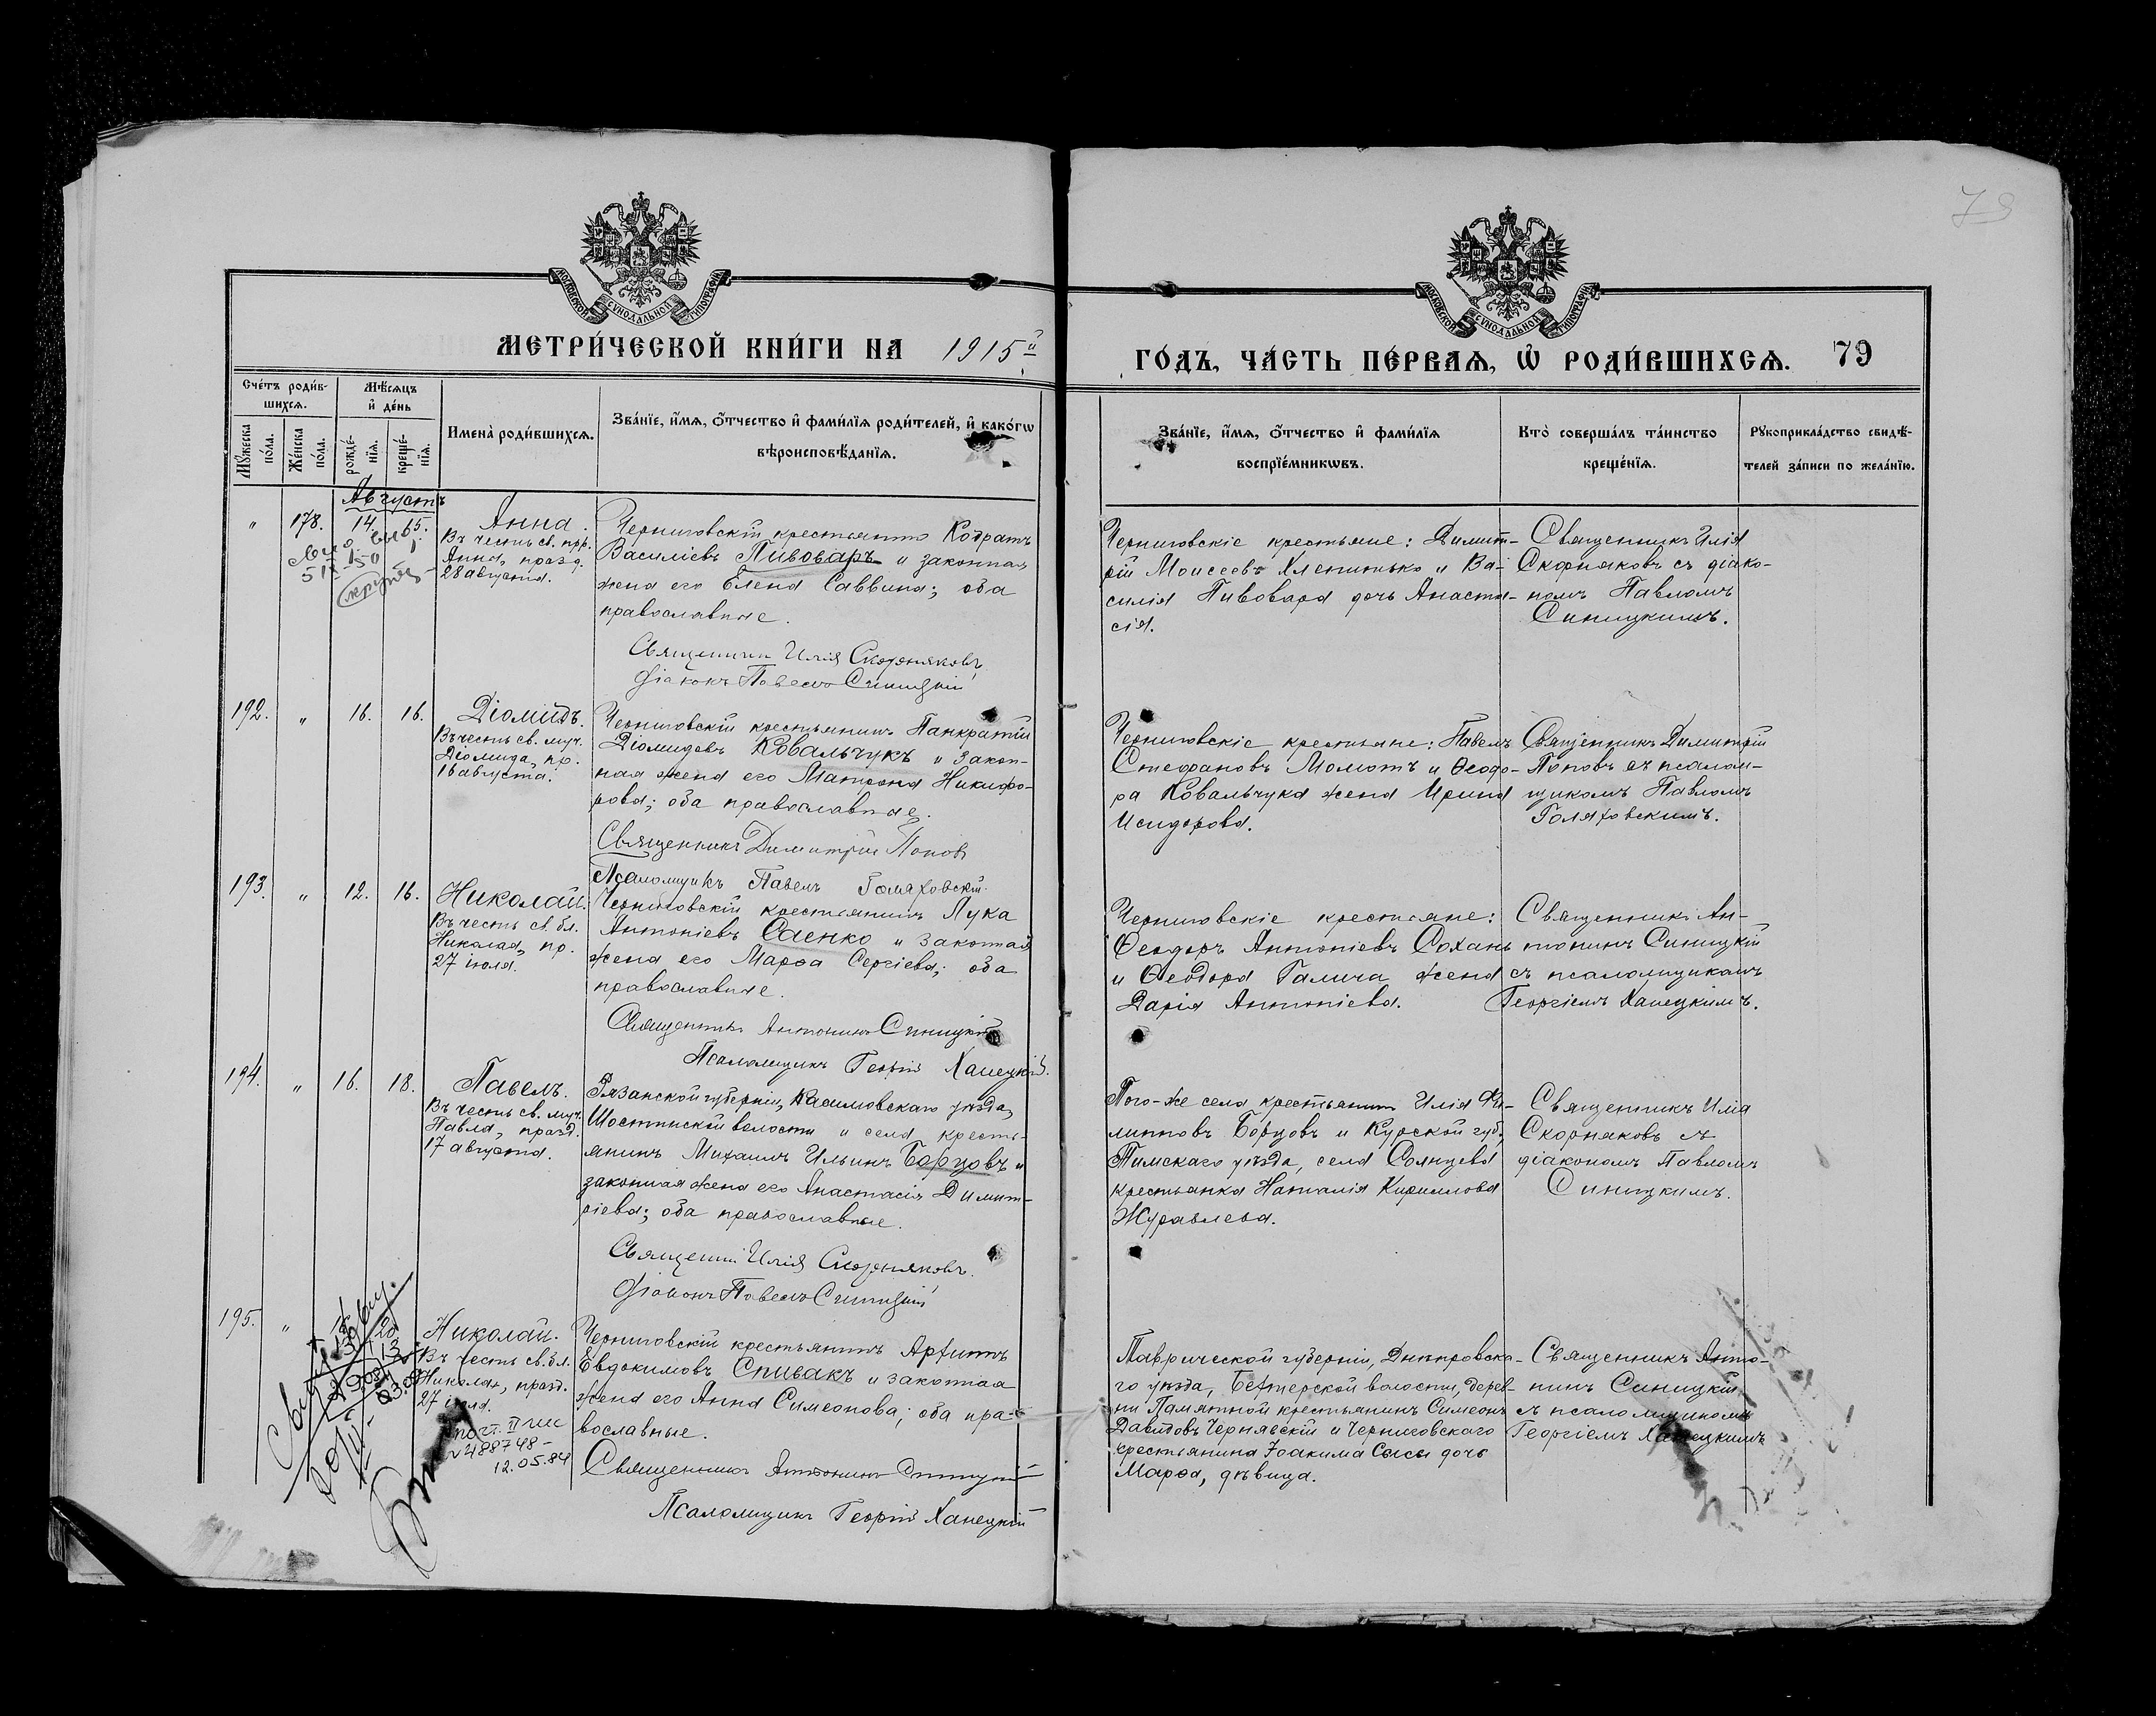 79
МОСКОВСКОЙ СУНОДАЛЬНОЙ ТИПОГРАФІИ
МОСКОВСКОЙ СУНОДАЛЬНОЙ ТИПОГРАФІИ
МЕТРИ́ЧЕСКОЙ КНИ́ГИ НА 1915й
ГО́ДЪ, ЧА́СТЬ ПЕ́РВАЯ, Ѽ РОДИ́ВШИХСЯ. 79
Сче́тъ роди́в-
шихся.
Мꙋ́жеска по́ла.
Же́нска по́ла.
Мѣ́сяцъ
и҆ де́нь
рожде́-
нїя.
креще́-
нїя.
Имена̀ роди́вшихся.
Зва́нїе, и҆́мя, ѻ҆́тчество и҆ фами́лїя роди́телей, и҆ како́гѡ
вѣроисповѣ́данїя.
Зва́нїе, и҆́мя, ѻ҆́тчество и҆ фами́лїя
воспрїе́мникѡвъ.
Кто̀ соверша́лъ та́инство
креще́нїя.
Рꙋкоприкла́дство свидѣ́-
телей за́писи по жела́нїю.
Августъ
" 178. 14. 15. Анна.
Въ честь св. прр.
Анны, празд.
28 августа.
Черниговскій крестьянинъ Кодратъ
Василіевъ Пивоваръ и законная
жена его Елена Саввина; оба
православные.
Священникъ Илія Скорняковъ
Діаконъ Павелъ Синицкій
Черниговскіе крестьяне: Димит-
рій Моисеевъ Хлепитько и Ва-
силія Пивовара дочь Анаста-
сія.
Священникъ Илія
Скорняковъ съ діако-
номъ Павломъ
Синицкимъ.
192. " 16. 16. Діомидъ.
Въ честь св. муч.
Діомида, пр.
16 августа.
Черниговскій крестьянинъ Панкратій
Діомидовъ Ковальчукъ и закон-
ная жена его Матрона Никифо-
рова; оба православные.
Священникъ Димитрій Поповъ
Псаломщикъ Павелъ Голяховскій.
Черниговскіе крестьяне: Павелъ
Стефановъ Момотъ и Ѳеодо-
ра Ковальчука жена Ирина
Исидорова.
Священникъ Димитрій
Поповъ съ псалом-
щикомъ Павломъ
Голяховскимъ.
193. " 12. 16. Николай.
Въ честь св. бл.
Николая, пр.
27 іюля.
Черниговскій крестьянинъ Лука
Антоніевъ Саенко и законная
жена его Марѳа Сергіева; оба
православные.
Священникъ Антонинъ Синицкій
Псаломщикъ Георгій Ханецкій.
Черниговскіе крестьяне:
Ѳеодоръ Антоніевъ Сохань
и Ѳеодора Галича жена
Дарія Антоніева.
Священникъ Ан-
тонинъ Синицкій
съ псаломщикомъ
Георгіемъ Ханецкимъ.
194. " 16. 18. Павелъ.
Въ честь св. муч.
Павла, празд.
17 августа.
Рязанской губерніи, Касимовскаго уѣзда,
Шостьинской волости и села кресть-
янинъ Михаилъ Ильинъ Борцовъ и
законная жена его Анастасія Димит-
ріева; оба православные.
Священникъ Илія Скорняковъ.
Діаконъ Павелъ Синицкій
Того-же села крестьянинъ Илія Фи-
липповъ Борцовъ и Курской губ.,
Тимскаго уѣзда, села Солнцева
крестьянка Наталія Кириллова
Журавлева.
Священникъ Илія
Скорняковъ съ
діакономъ Павломъ
Синицкимъ.
195. " 20. Николай.
Въ честь св. бл.
Николая, празд.
27 іюля.
Черниговскій крестьянинъ Архипъ
Евдокимовъ Спивакъ и законная
жена его Анна Симеонова; оба пра-
вославные.
Священникъ Антонинъ Синицкій
Псаломщикъ Георгій Ханецкій
Таврической губерніи, Днѣпровска-
го уѣзда, Бехтерской волости, дерев-
ни Памятной крестьянинъ Симеонъ
Давидовъ Чернявскій и Черниговскаго
крестьянина Іоакима Сысы дочь
Марѳа, дѣвица.
Священникъ Анто-
нинъ Синицкій
съ псаломщикомъ
Георгіемъ Ханецкимъ
12.05.84